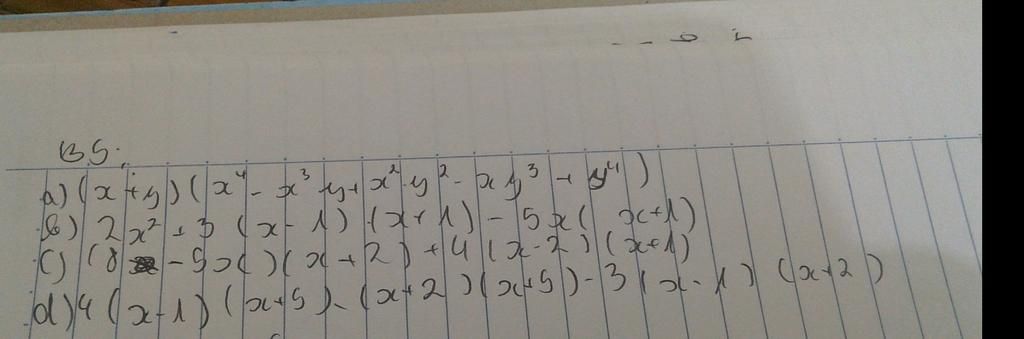 B5:
a) (x + y) (x⁴ - x³ y + x² y² - x y³ + y⁴)
b) 2x² + 3 (x - 1) (x + 1) - 5x ( x + 1)
c) (8 - 5x) (x + 2) + 4 (x - 2) (x + 1)
d) 4 (x - 1) (x + 5) - (x + 2) (x + 5) - 3 (x - 1) (x + 2)